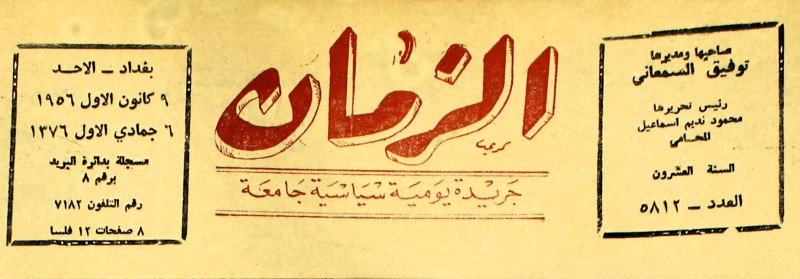 صاحبها ومديرها
توفيق السمعاني
رئيس تحريرها
محمود نديم اسماعيل
المحامي
السنة العشرون
العدد ــ ٥٨١٢
الزمان
كريم
جريدة يومية سياسية جامعة
بغداد ــ الاحد
٩ كانون الاول ١٩٥٦
٦ جمادي الاول ١٣٧٦
مسجلة بدائرة البريد
برقم ٨
رقم التلفون ٧١٨٢
٨ صفحات ١٢ فلسا